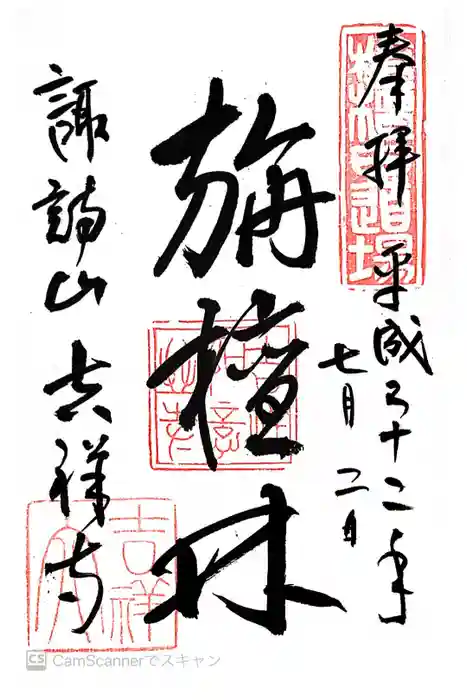 奉拝 平成二十二年
七月二日
旃檀林
諏訪山 吉祥寺
吉祥
CS CamScannerでスキャン